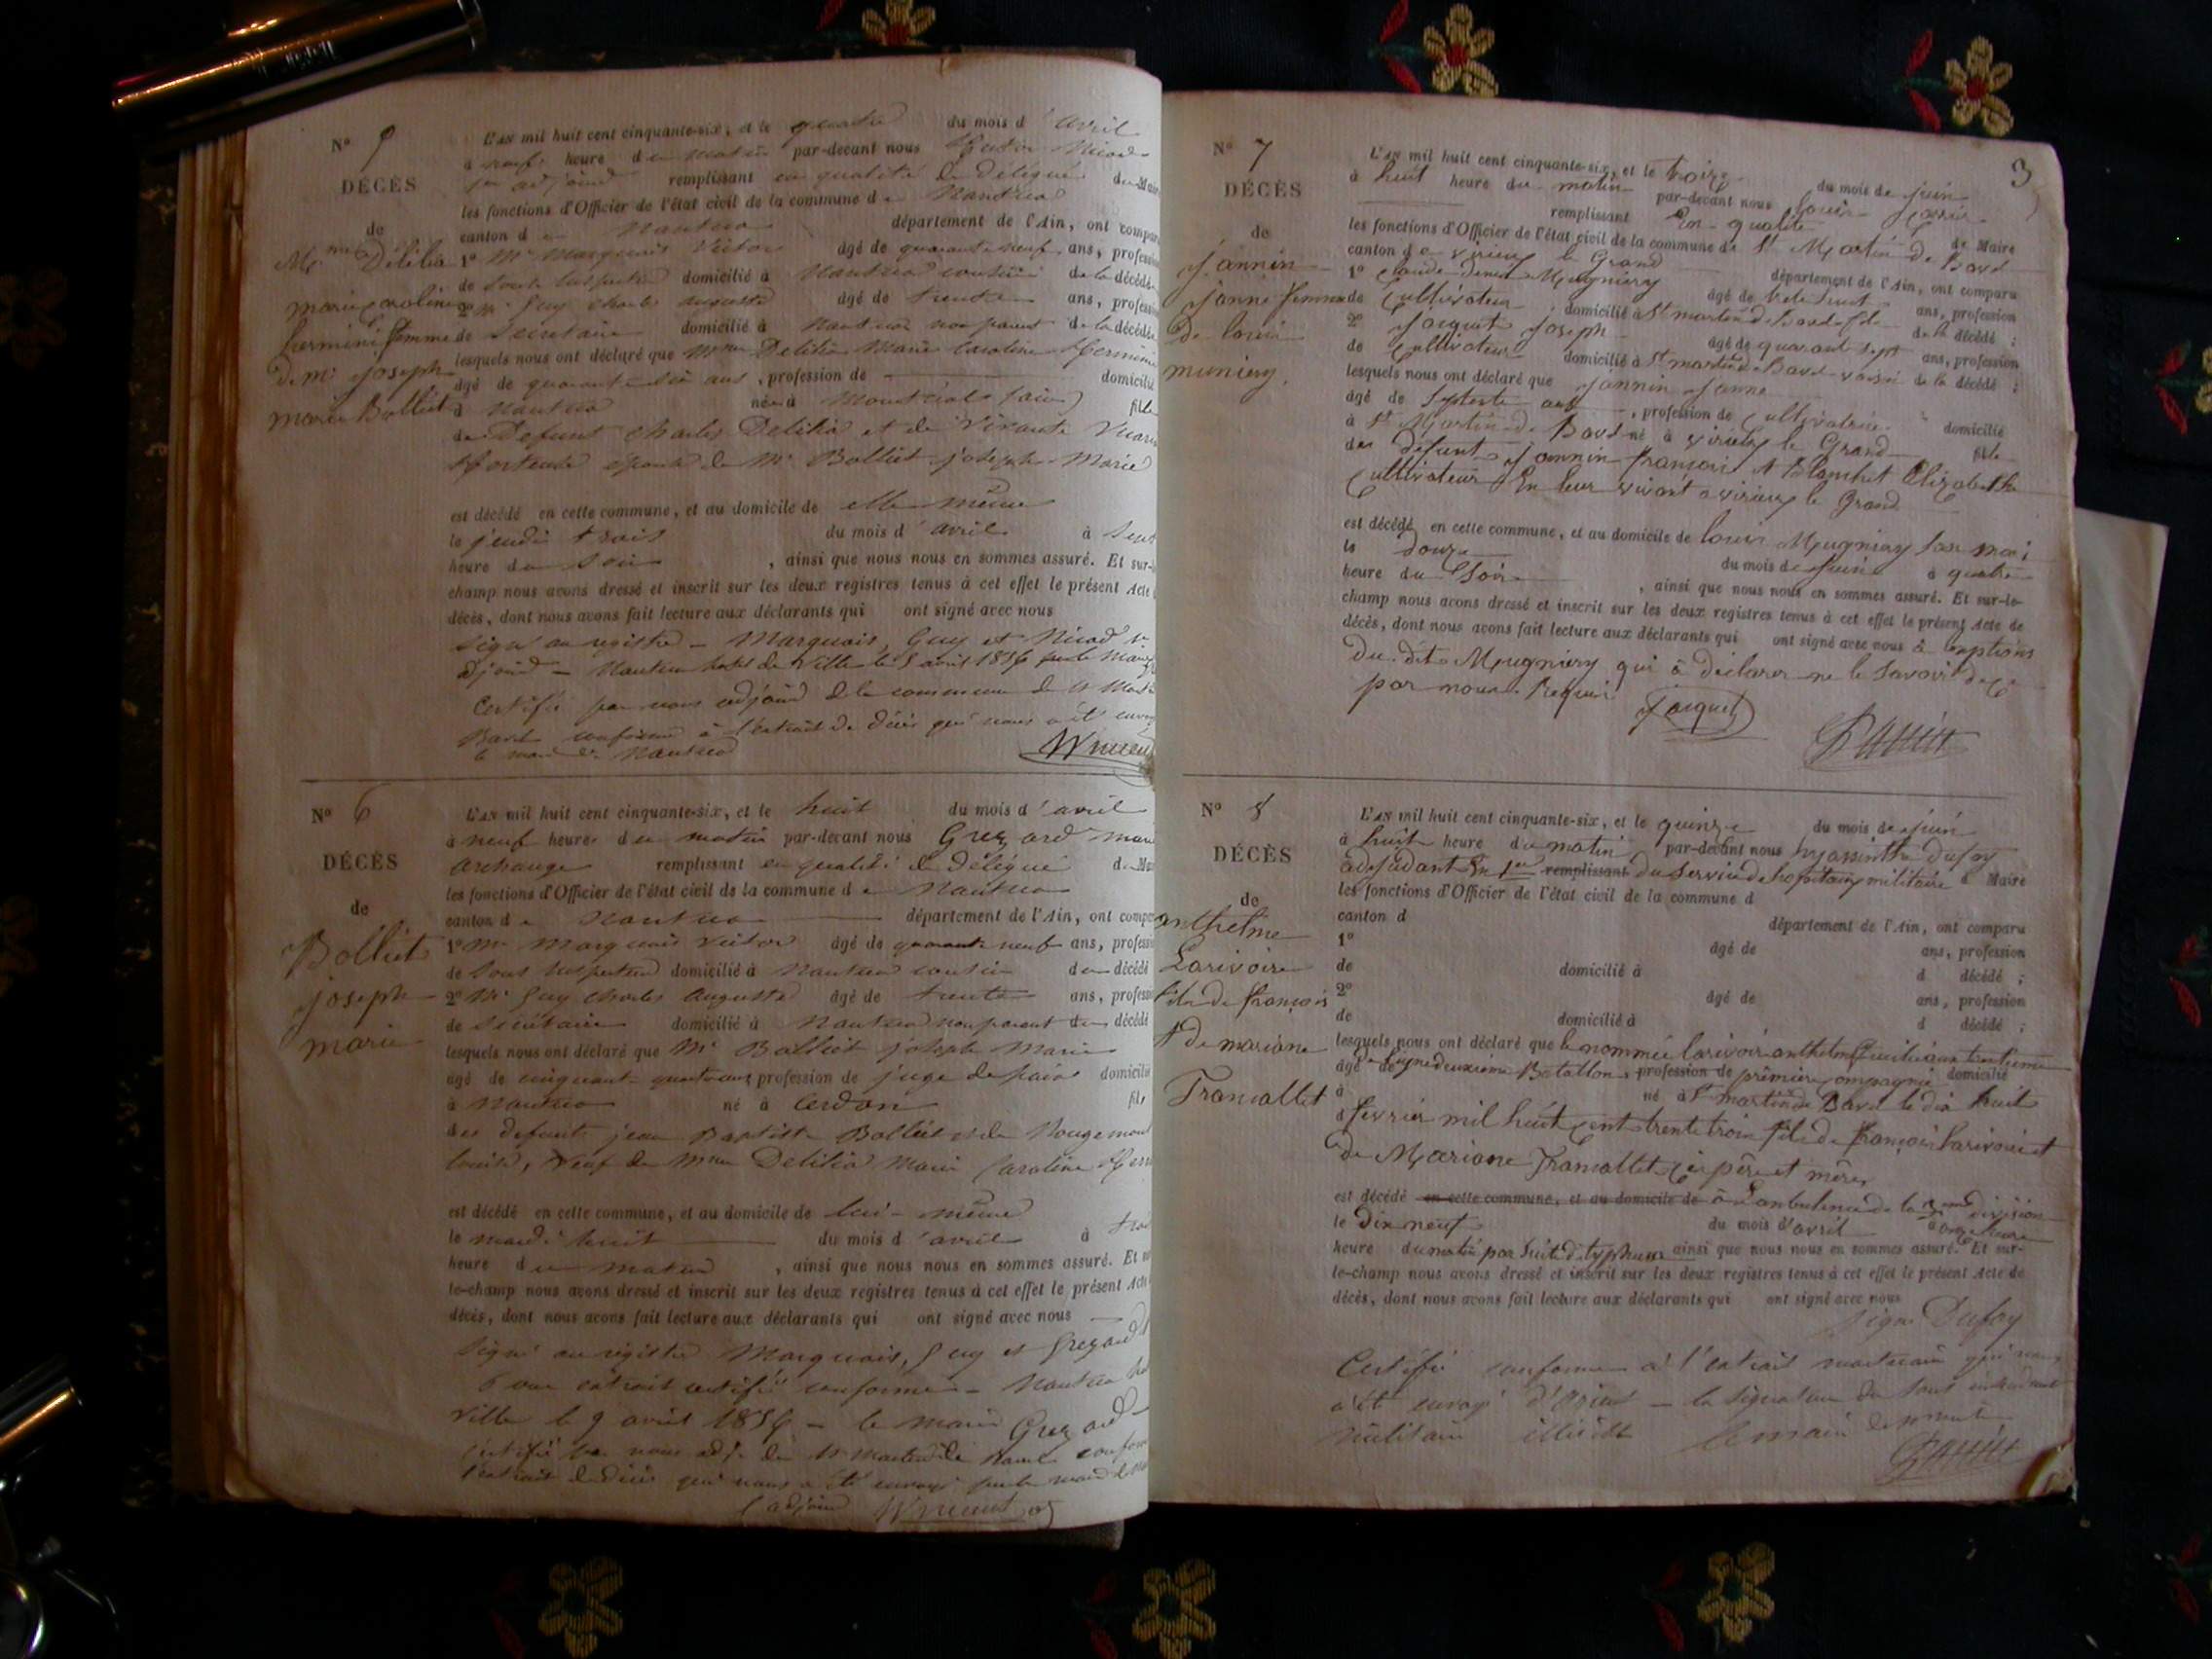 N° 5
DÉCÈS
de
Mme Délilia
marie caroline
hermine femme
De Mr joseph
marie Bolliet
L'AN mil huit cent cinquante-six, et le quatre du mois d'avril
à neuf heure du matin par-devant nous
1er adjoint remplissant en qualité de délégué du Maire
les fonctions d'Officier de l'état civil de la commune de Nantua
canton de Nantua département de l'Ain, ont comparu
1° Mr Marquis Victor âgé de quarante neuf ans, profession
de Sous Inspecteur domicilié à Nantua cousin de la décédée
2° Mr Guy Charles Auguste âgé de trente ans, profession
de Secrétaire domicilié à Nantua non parent de la décédée
lesquels nous ont déclaré que Mme Delilia Marie Caroline Hermine
âgé de quarante six ans, profession de domicilié
à Nantua née à Montréal (ain) fille
de Defunt Charles Delilia et de Vivante
Hortense épouse de Mr Bolliet joseph Marie
est décédé en cette commune, et au domicile de elle même
le jeudi trois du mois d'avril à
heure du Soir, ainsi que nous nous en sommes assuré. Et sur-le-
champ nous avons dressé et inscrit sur les deux registres tenus à cet effet le présent Acte de
décès, dont nous avons fait lecture aux déclarants qui ont signé avec nous
Signé au registre - Marquis, Guy et Nicod 1er
adjoint - Nantua hotel de Ville le 5 avril 1856 par le maire
Certifié par nous adjoint de la commune de St Martin
Bavel conforme à l'extrait de décès qui nous a été envoyé
le maire de Nantua
Wincent
N° 6
DÉCÈS
de
Bolliet
joseph
marie
L'AN mil huit cent cinquante-six, et le huit du mois d'avril
à neuf heures du matin par-devant nous Grezard
archange remplissant en qualité de délégué du Maire
les fonctions d'Officier de l'état civil de la commune de Nantua
canton de Nantua département de l'Ain, ont comparu
1° Mr Marquis Victor âgé de quarante neuf ans, profession
de Sous Inspecteur domicilié à Nantua cousin du décédé
2° Mr Guy Charles Auguste âgé de trente ans, profession
de Secrétaire domicilié à Nantua non parent du décédé
lesquels nous ont déclaré que Mr Bolliet joseph Marie
âgé de cinquante quatre ans, profession de juge de paix domicilié
à Nantua né à Cerdon fils
des defunts jean Baptiste Bolliet et de Rougemont
Louise, Veuf de Mme Delilia Marie Caroline
est décédé en cette commune, et au domicile de lui-même
le mardi huit du mois d'avril à
heure du matin, ainsi que nous nous en sommes assuré. Et sur-
le-champ nous avons dressé et inscrit sur les deux registres tenus à cet effet le présent Acte
décès, dont nous avons fait lecture aux déclarants qui ont signé avec nous
Signé au registre Marquis, Guy et Grezard
Pour extrait certifié conforme - Nantua
Ville le 9 avril 1856 - le maire Grezard
Certifié par nous adjt de St Martin de Bavel conforme
l'extrait de décès qui nous a été envoyé par le maire de
l'adjoint Wincent
3
N° 7
DÉCÈS
de
jannin
janne femme
De louis
muniery
L'AN mil huit cent cinquante-six, et le treize du mois de juin
à huit heure du matin par-devant nous louis
remplissant En qualité de Maire
les fonctions d'Officier de l'état civil de la commune de St Martin de Bavel
canton de virieu le Grand département de l'Ain, ont comparu
1° Claude Meugniery âgé de ans, profession
de Cultivateur domicilié à St martin de bavel de la décédé ;
2° jacquet joseph âgé de quarant sept ans, profession
de Cultivateur domicilié à St martin de Bavel voisin de la décédé ;
lesquels nous ont déclaré que jannin janne
âgé de ans, profession de Cultivatrice domicilié
à St Martin de Bavel né à virieu le Grand fille
des défunts jannin françois et Blanchet Elizabethe
Cultivateur En leur vivant a virieu le Grand
est décédé en cette commune, et au domicile de louis Meugniery son mari
le douze du mois de juin à quatre
heure du Soir, ainsi que nous nous en sommes assuré. Et sur-le-
champ nous avons dressé et inscrit sur les deux registres tenus à cet effet le présent Acte de
décès, dont nous avons fait lecture aux déclarants qui ont signé avec nous à exption
du dit Meugniery qui à déclarer ne le Savoir de ce
par nous Requis
Jacquet
N° 8
DÉCÈS
de
anthelme
Larivoire
fils de françois
et de mariane
Tramallet
L'AN mil huit cent cinquante-six, et le quinze du mois de juin
à huit heure du matin par-devant nous hyassinthe Dufoy
adjudant En 1er remplissant du Service de hopitaux militaire d Maire
les fonctions d'Officier de l'état civil de la commune d
canton d département de l'Ain, ont comparu
1° âgé de ans, profession
de domicilié à d décédé ;
2° âgé de ans, profession
de domicilié à d décédé ;
lesquels nous ont déclaré que le nommée larivoir anthelme
âgé de ligne deuxième Batallon, profession de première compagnie domicilié
à né à St martin de Bavel le dix huit
février mil huit cent trente trois fils de françois larivoir et
de Mariane Tramallet ces père et mère
est décédé en cette commune, et au domicile de à Lanbulence de la division
le dix neuf du mois d'avril à onze heure
heure du matin par Suite de typhus ainsi que nous nous en sommes assuré. Et sur-
le-champ nous avons dressé et inscrit sur les deux registres tenus à cet effet le présent Acte de
décès, dont nous avons fait lecture aux déclarants qui ont signé avec nous
Signé Dufoy
Certifié conforme à l'extrait mortuaire qui nous
a été envoyé d'Orient - la signature du Sous intendant
militaire illisible le maire